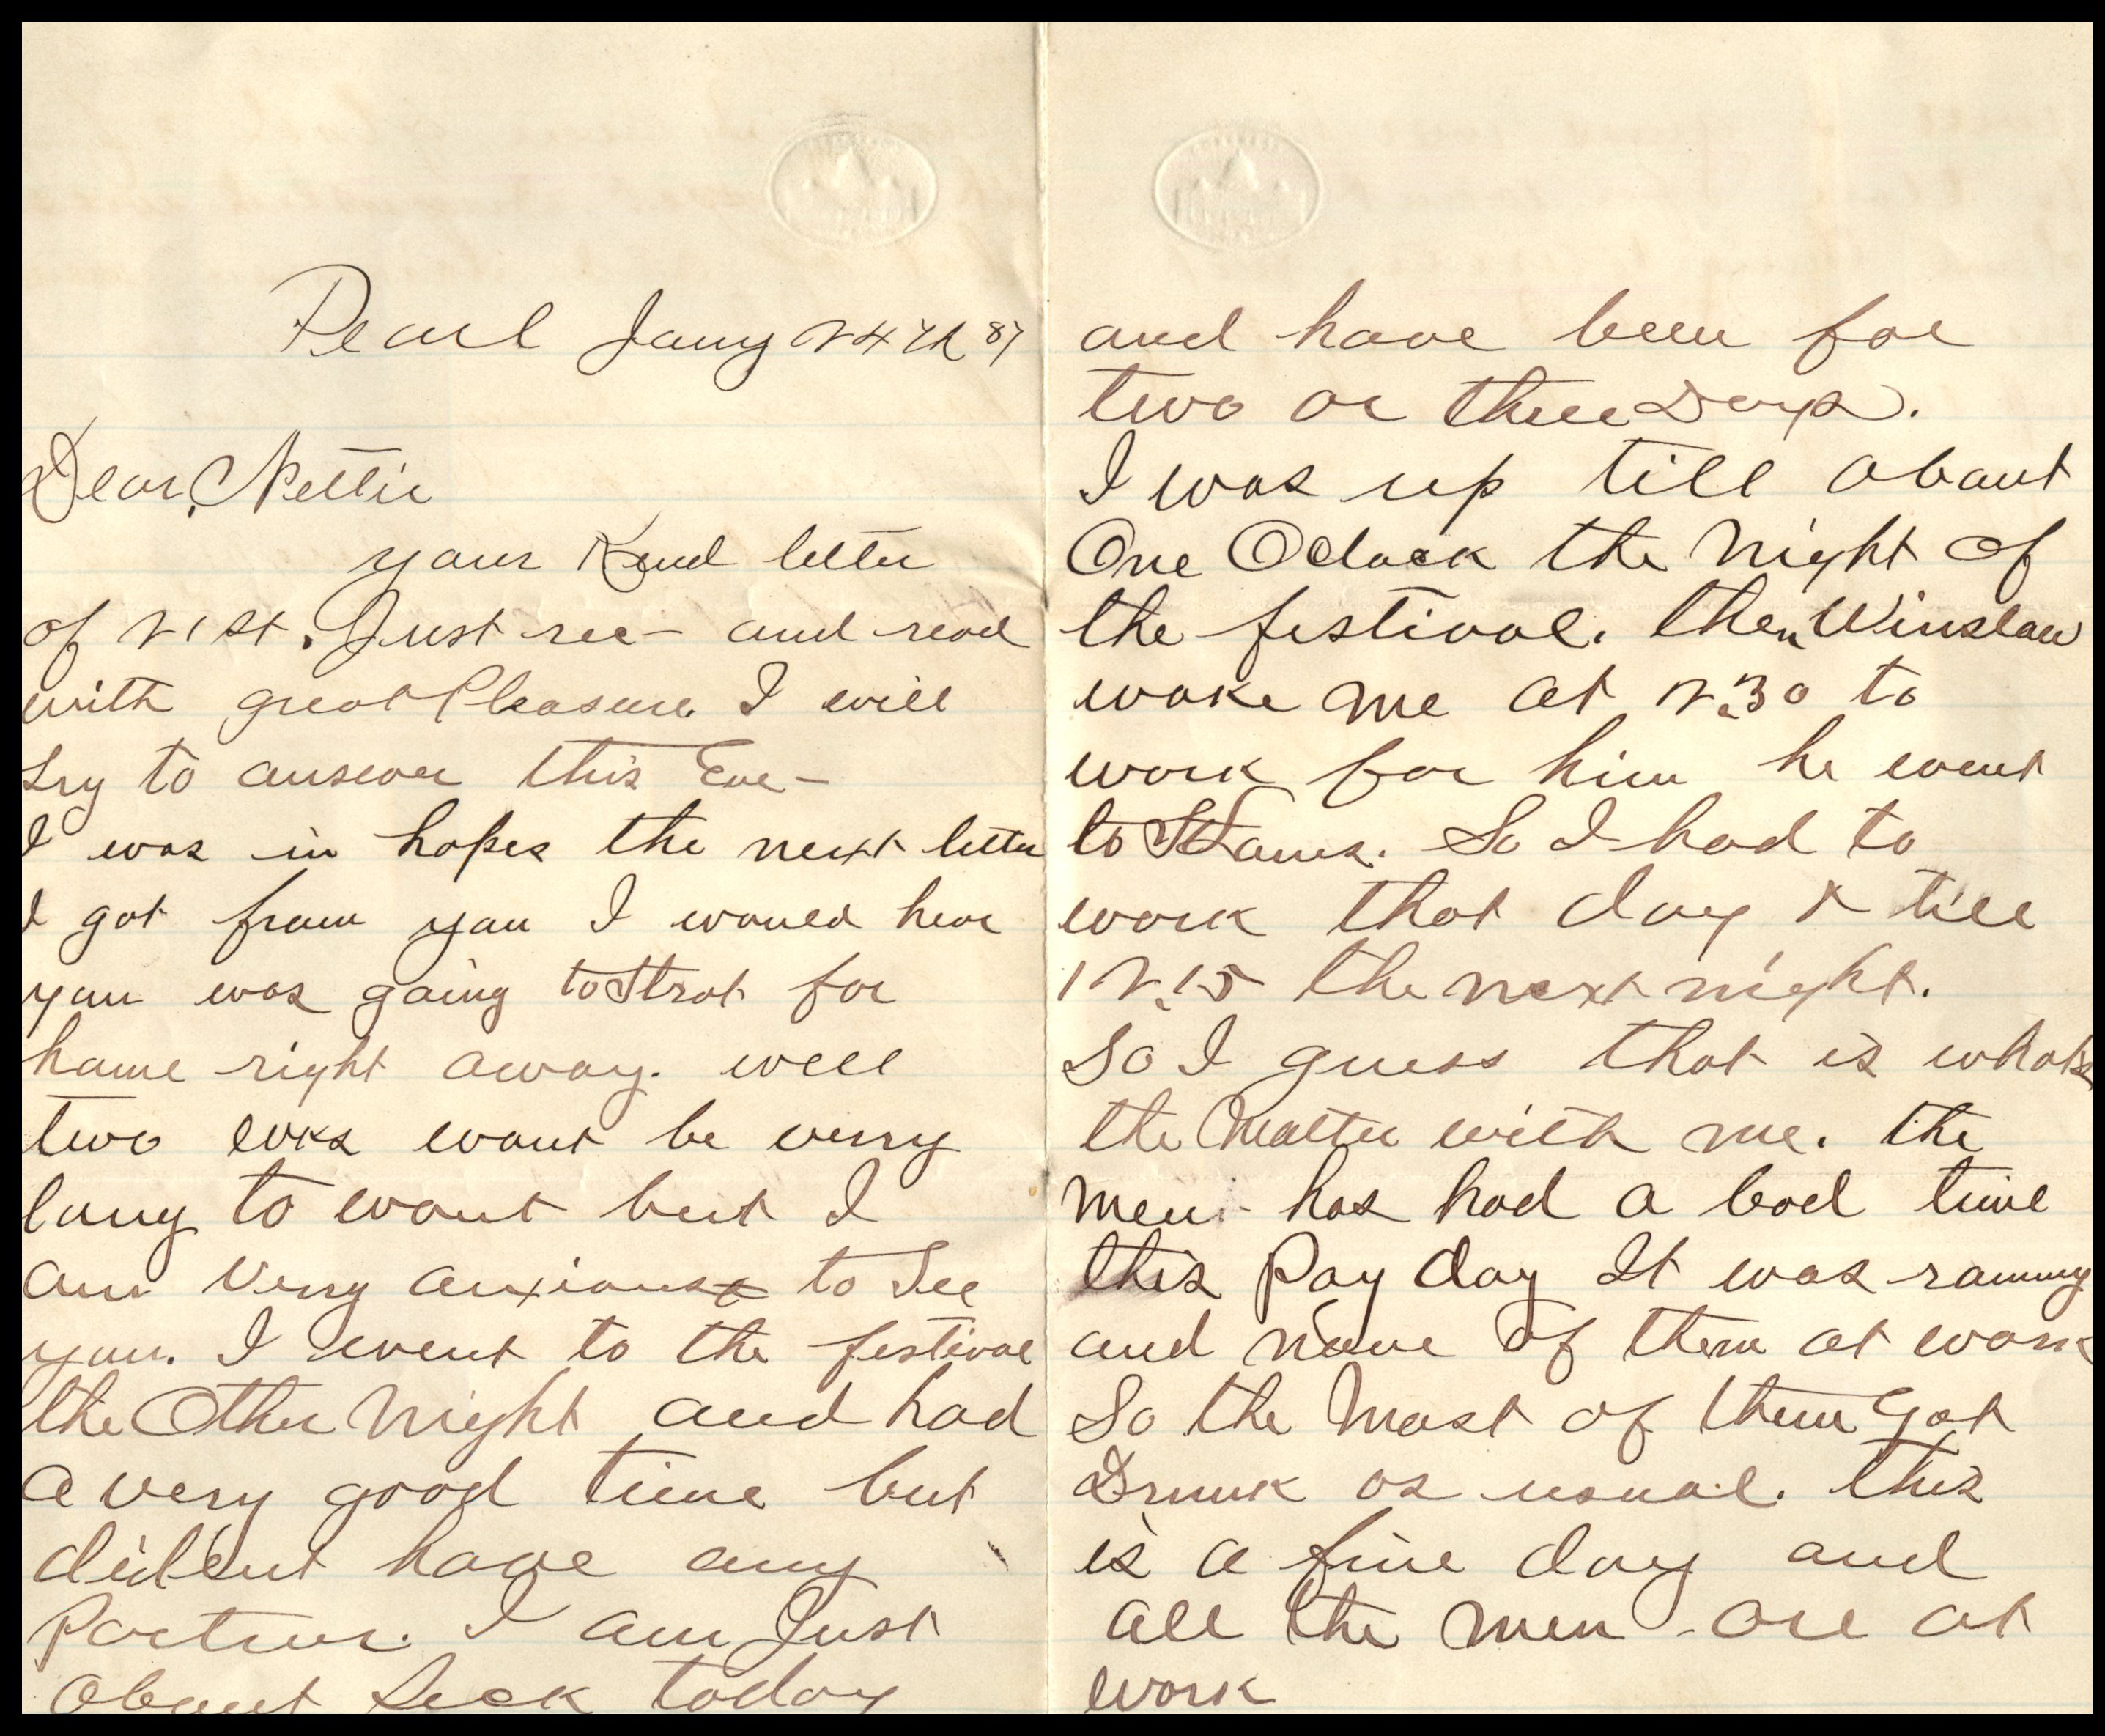 Pearl Jany 24th 87
Dear, Nettie
your Kind letter
of 21st. Just rec- and read
with great Pleasure. I will
try to answer this Eve-
I was in hopes the next letter
I got from you I would hear
you was going to Strat for
home right away. well
two wks wont be verry
long to wait but I
am verry anxious to See
you. I went to the festival
the Other Night and had
a very good time but
did'ent have any
Partner. I am Just
about Sick today
and have been for
two or three Days.
I was up till about
One Oclock the Night of
the festival. then Winslow
woke me at 2.30 to
work for him he went
to St Louis. So I had to
work that day & till
12.15 the next night.
So I guess that is whats
the Matter with me. the
men has had a bad time
this Pay day It was rainny
and none of them at work
So the Most of them Got
Drunk as usual. this
is a fine day and
all the men are at
work